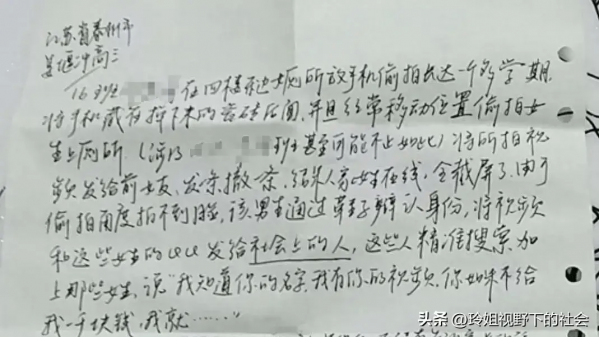 江苏省泰州市
姜堰中高三
16班 在四楼北女厕所放手机偷拍长达一个多学期
将手机藏在掉下来的瓷砖后面,并且经常移动位置偷拍女
生上厕所。(涉及 班甚至可能不止如此)将所拍视
频发给前女友,发亲撤亲,结果人家女生在线,全截屏了,由于
偷拍角度拍不到脸,该男生通过鞋子辨认身份,将视频
和这些女生的QQ发给社会上的人,这些人精准搜索加
上那些女生,说“我知道你的名字,我有你的视频,你如果不给
我一千块钱,我就……”
头条 @玲姐视野下的社会